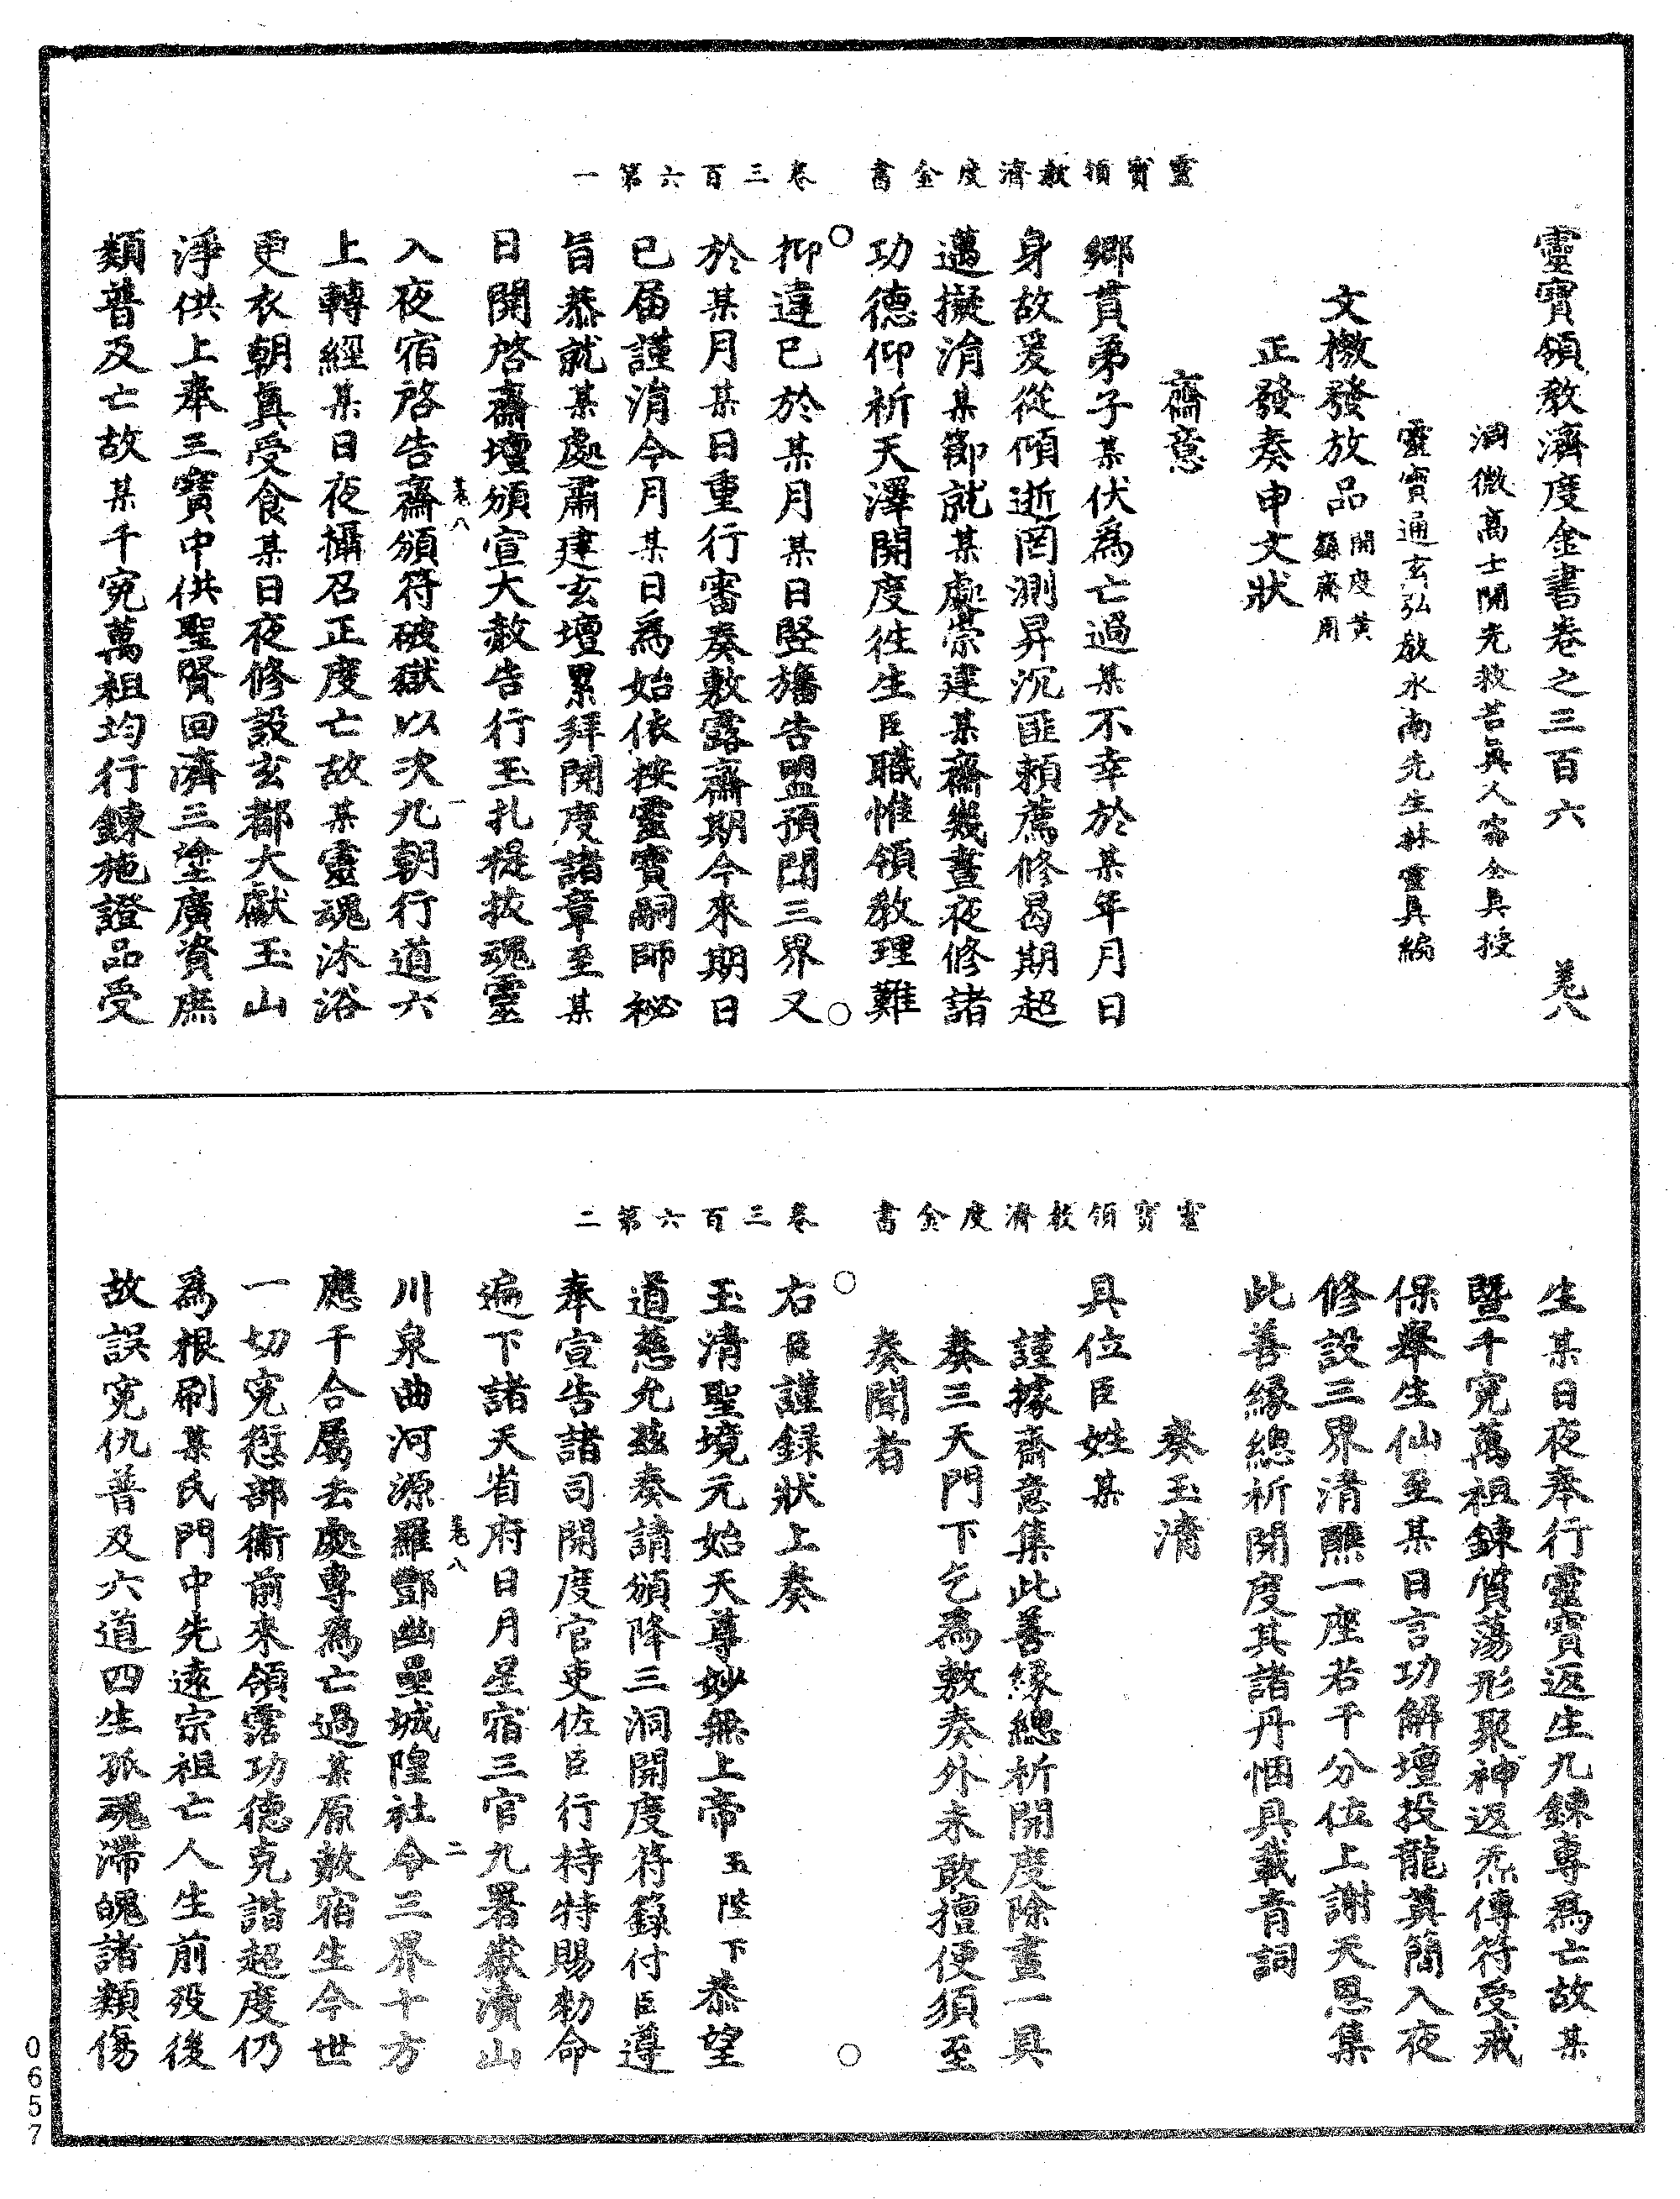 靈寶領教濟度金書　卷三百六第一
靈寶領教濟度金書卷之三百六　羌八
洞微高士開光救苦真人甯全真授
靈寶通玄弘教水南先生林靈真編
文檄發放品開度黃籙齋用
正發奏申文狀
齋意
鄉貫弟子某伏為亡過某不幸於某年月日
身故爰從傾逝罔測昇沉匪賴薦修曷期超
邁擬涓某節就某處崇建某齋幾晝夜修諸
功德仰祈天澤開度往生臣職惟領教理難
抑違已於某月某日竪旛告盟預聞三界又
於某月某日重行審奏敷露齋期今來期日
已届謹涓今月某日為始依按靈寶嗣師秘
旨恭就某處肅建玄壇累拜開度諸章至某
日開啓齋壇頒宣大赦告行玉扎提拔魂靈
羌八　一
入夜宿啓告齋頒符破獄以次九朝行道六
上轉經某日夜攝召正度亡故某靈魂沐浴
更衣朝真受食某日夜修設玄都大獻玉山
淨供上奉三寶中供聖賢回濟三塗廣資庶
類普及亡故某千寃萬祖均行鍊施證品受
靈寶領教濟度金書　卷三百六第二
生某日夜奉行靈寶返生九鍊專為亡故某
暨千寃萬祖鍊質蕩形聚神返炁傳符受戒
保舉生仙至某日言功解壇投龍奠簡入夜
修設三界清醮一座若干分位上謝天恩集
此善緣總祈開度其諸丹悃具載青詞
奏玉清
具位臣姓某
謹據齋意集此善緣總祈開度除畫一具
奏三天門下乞為敷奏外未敢擅便須至
奏聞者
右臣謹録狀上奏
玉清聖境元始天尊妙無上帝玉陛下恭望
道慈允兹奏請頒降三洞開度符籙付臣遵
奉宣告諸司開度官吏佐臣行持特賜勑命
遍下諸天省府日月星宿三官九署嶽瀆山
羌八　二
川泉曲河源羅酆幽壘城隍社令三界十方
應干合屬去處專為亡過某原赦宿生今世
一切寃愆部衛前來領霑功德克諧超度仍
為根刷某氏門中先遠宗祖亡人生前殁後
故誤寃仇普及六道四生孤魂滯魄諸類傷
0657